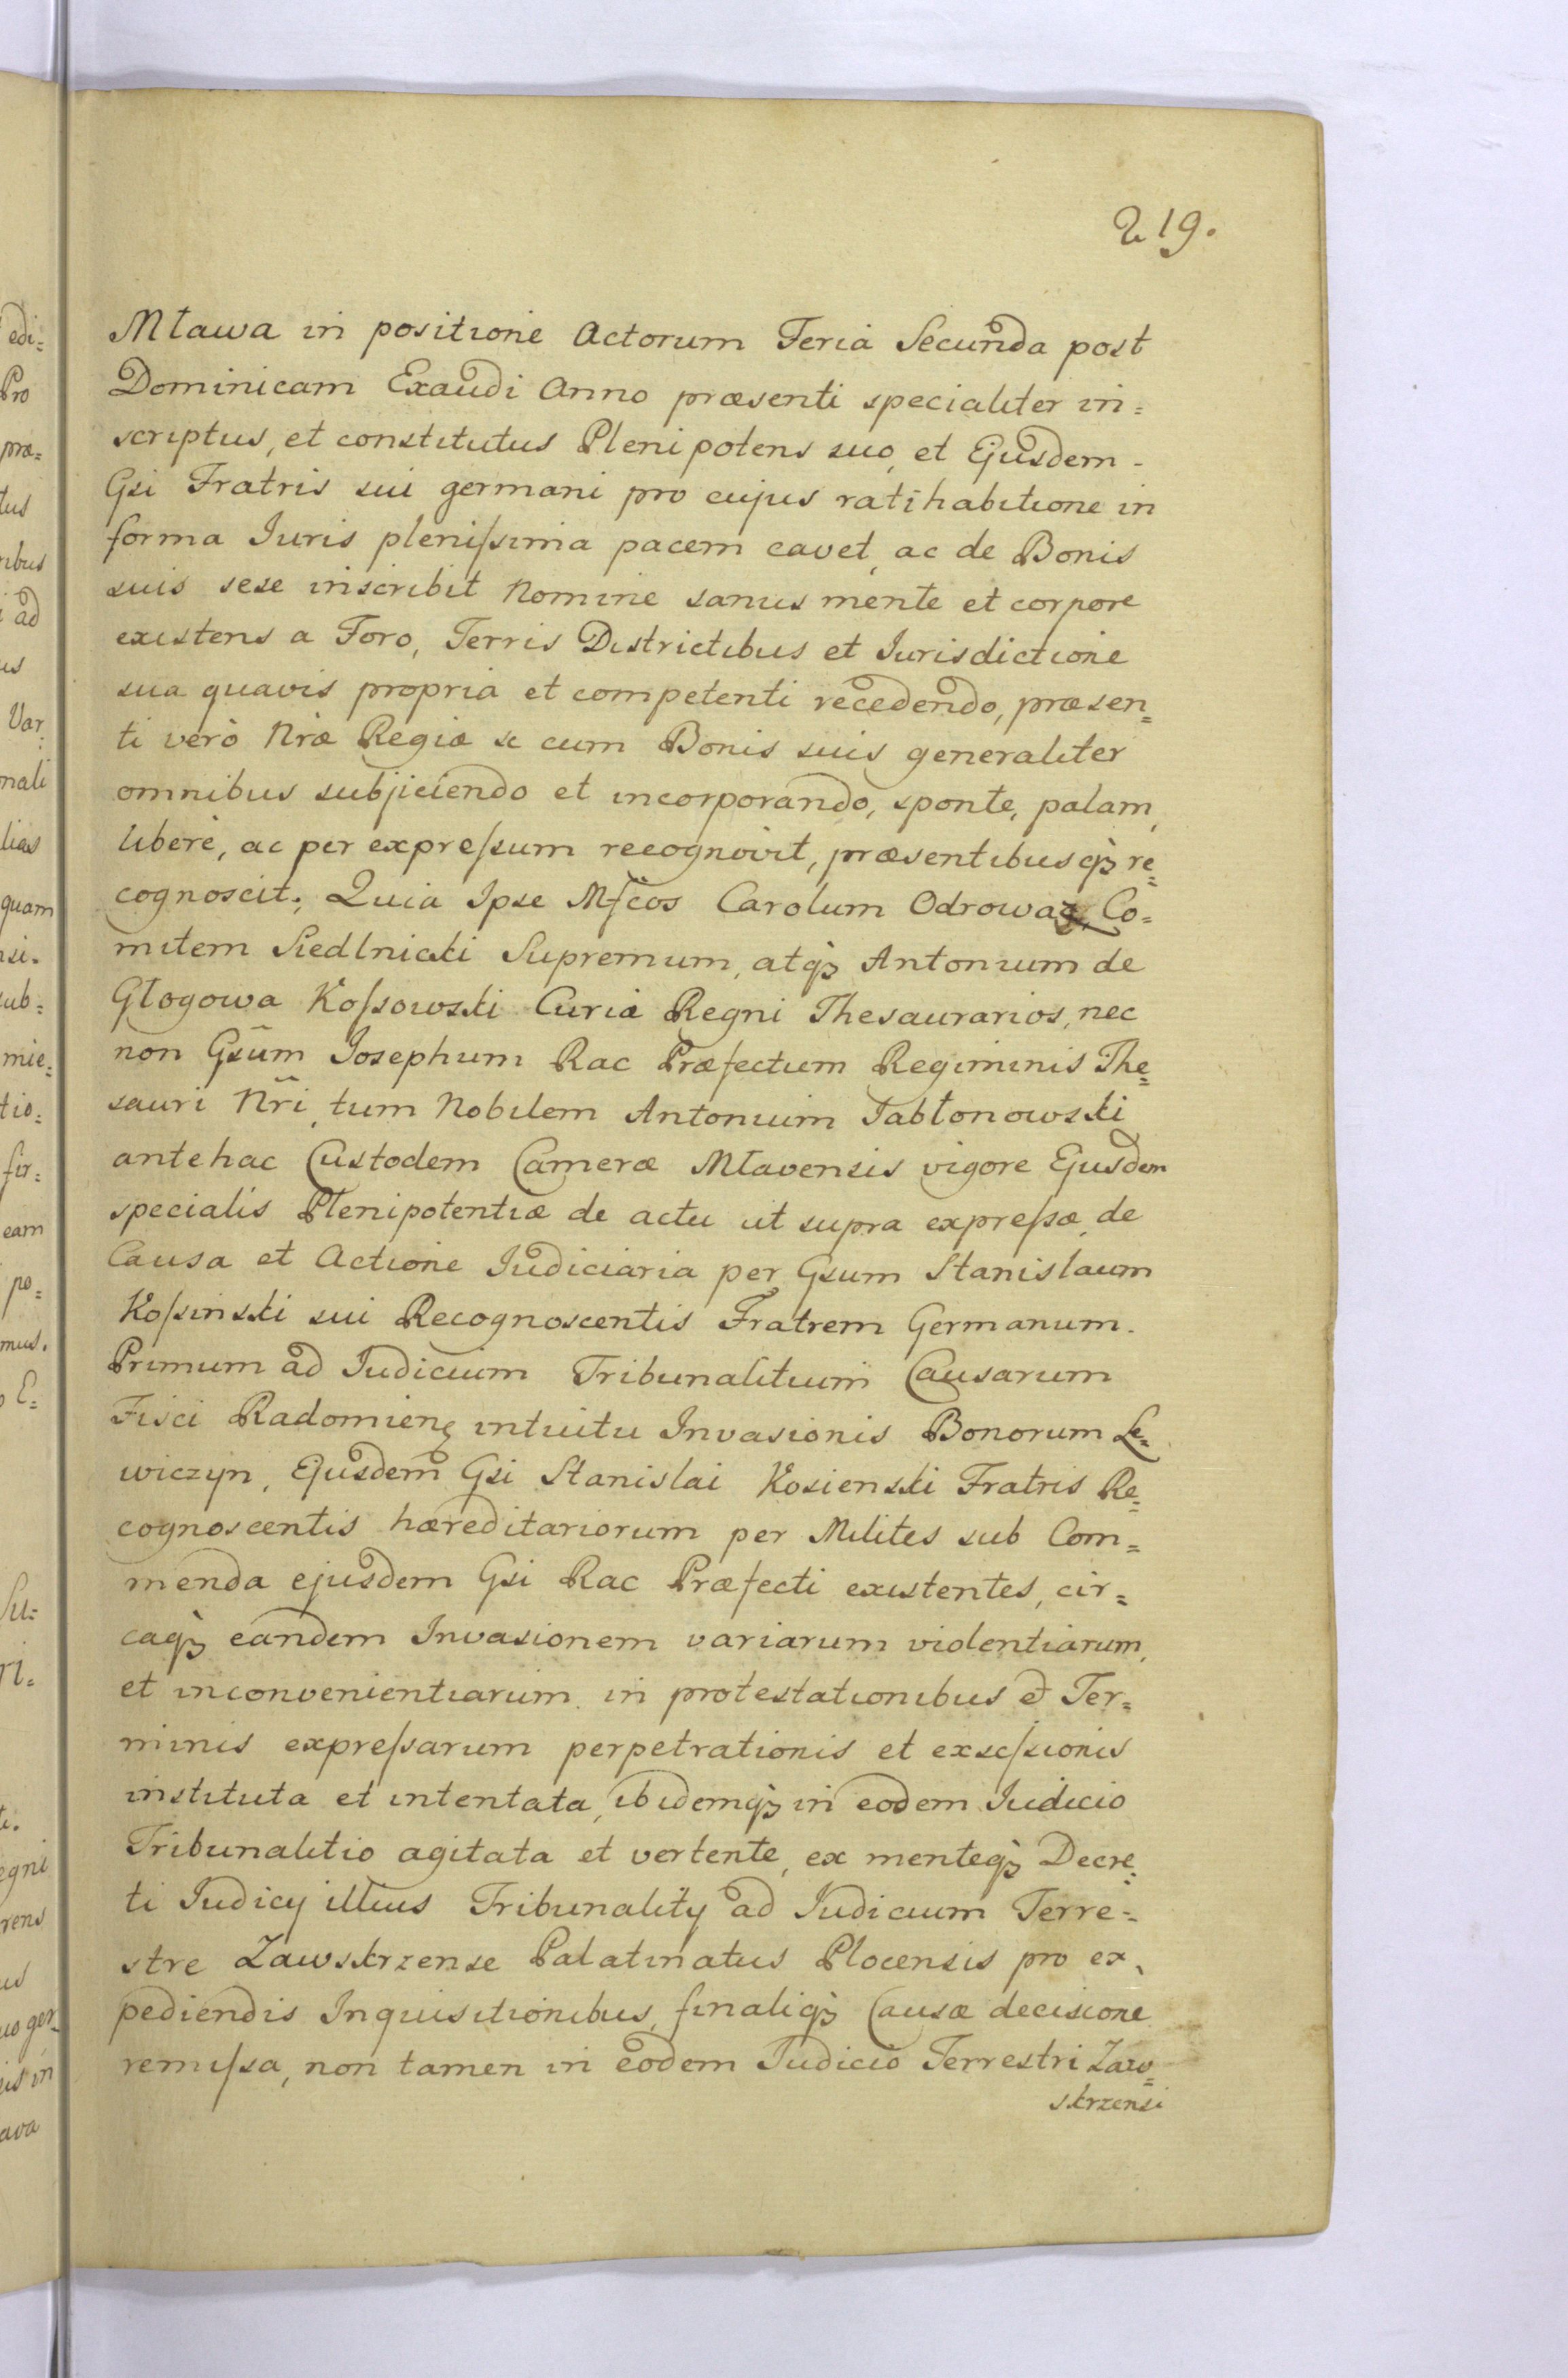 219.
Mława in positione Actorum Feria Secunda post
Dominicam Exaudi Anno præsenti specialiter in=
scriptus, et constitutus Plenipotens suo, et Ejusdem
Gsi Fratris sui germani pro cujus ratihabitione in
forma Iuris pleniſsima pacem cavet, ac de Bonis
suis sese inscribit Nomine sanus mente et corpore
existens a Foro, Terris Districtibus et Iurisdictione
sua quavis propria et competenti recedendo, præsen=
ti verò Nræ Regiæ se cum Bonis suis generaliter
omnibus subjiciendo et incorporando, sponte, palam,
liberè, ac per expreſsum recognovit, præsentibusqꝫ re=
cognoscit; Quia Ipse Mfcos Carolum Odrowaz Co=
mitem Siedlnicki Supremum, atqꝫ Antonium de
Głogowa Koſsowski Curiæ Regni Thesaurarios, nec
non Gsum̃ Josephum Rac Præfectum Regiminis The=
sauri Nrĩ, tum Nobilem Antonium Jabłonowski
antehac Custodem Cameræ Mlavensis vigore Ejusdem
specialis Plenipotentiæ de actu ut supra expreſsæ, de
Causa et Actione Judiciaria per Gsum Stanislaum
Koſsinski sui Recognoscentis Fratrem Germanum.
Primum ad Judicium Tribunalitium Causarum
Fisci Radomieng intuitu Invasionis Bonorum Le=
wiczyn, Ejusdem Gsi Stanislai Kosienski Fratris Re=
cognoscentis hæreditariorum per Milites sub Com=
menda ejusdem Gsi Rac Præfecti existentes, cir=
caqꝫ eandem Invasionem variarum violentiarum,
et inconvenientiarum in protestationibus et Ter=
minis expreſsarum perpetrationis et exseſsionis
instituta et intentata, ibidemqꝫ in eodem Iudicio
Tribunalitio agitata et vertente, ex menteqꝫ Decre=
ti Judicy illius Tribunality ad Judicium Terre=
stre Zawskrzense Palatinatus Plocensis pro ex=
pediendis Inquisitionibus, finaliqꝫ Causæ decisione
remiſsa, non tamen in eodem Judicio Terrestri Zaw=
skrzensi
edi=
Pro
præ=
tus
ribus
i ad
us
Var:
nali
lias
quam
nsi.
sub=
mie=
tio=
fir=
eam
po=
mus.
E=
Su=
ri=
ti.
egni
rens
us
uo ger
is in
ava